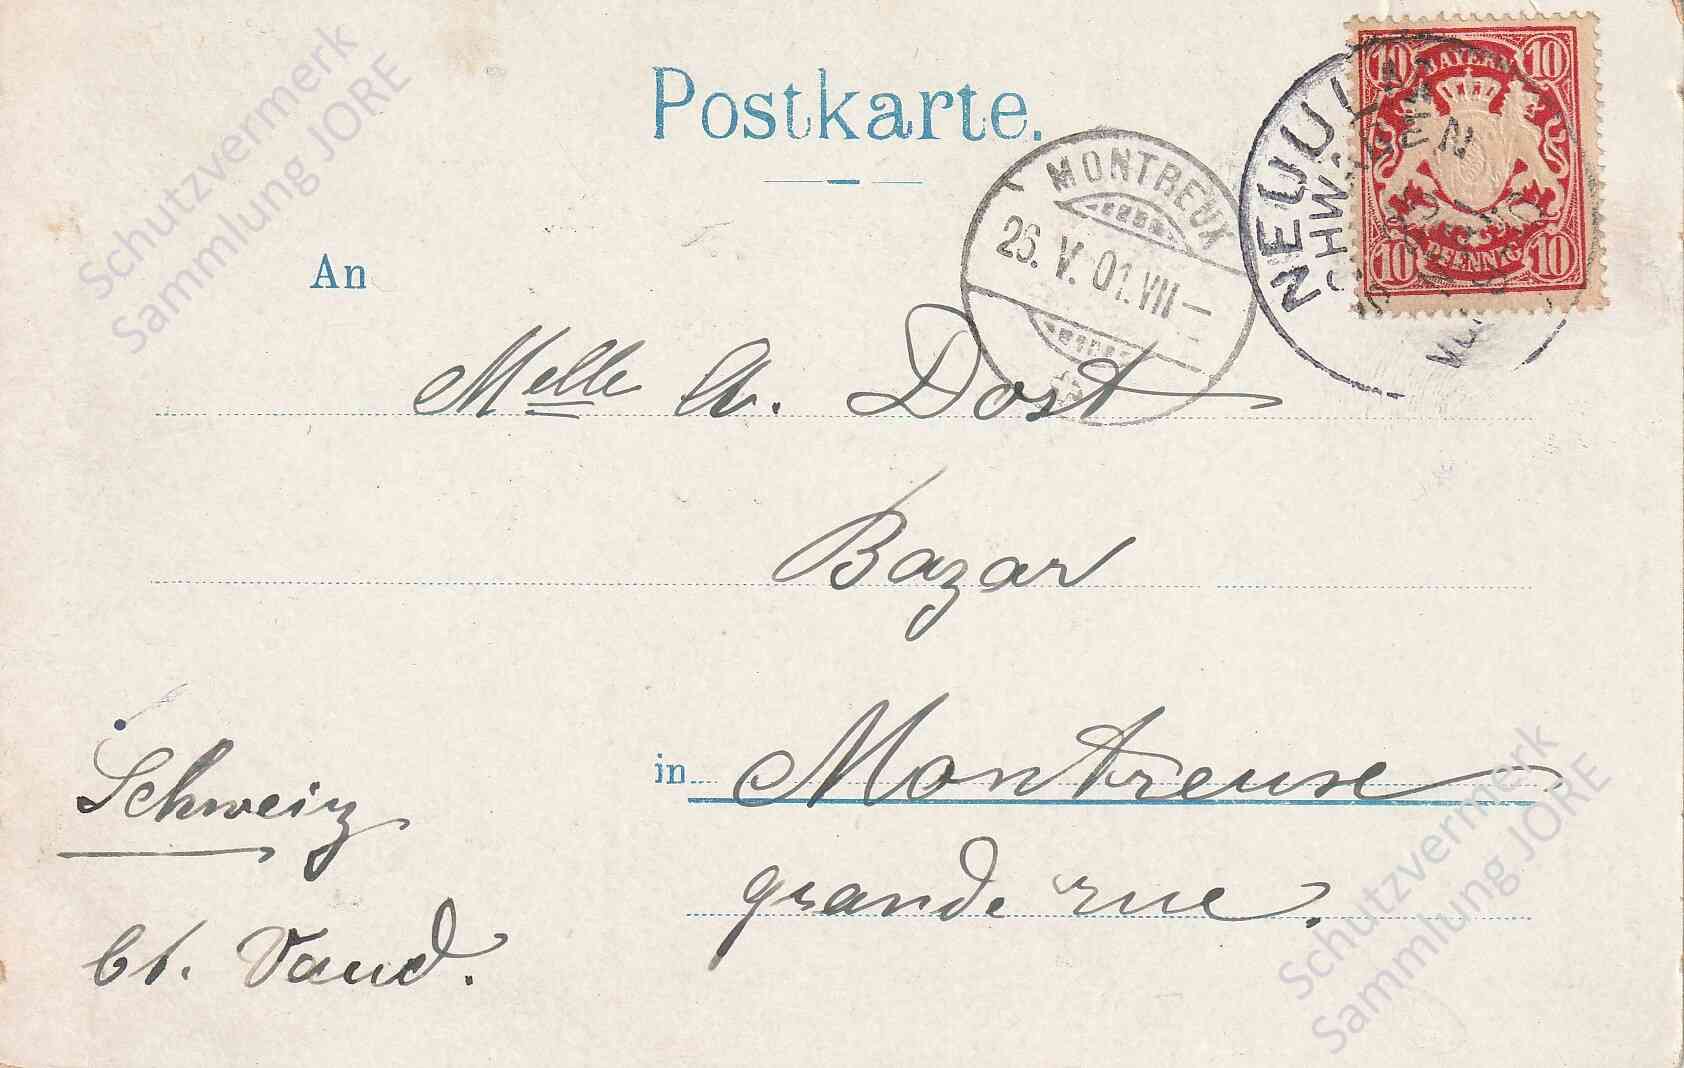 Postkarte.
10 BAYERN 10
10 PFENNIG 10
NEUULM
SCHWABEN
MONTREUX
26. V. 01. VII
An
Melle A. Dost
Bazar
in Montreuse
grande rue.
Schweiz
Ct. Vaud.
Schutzvermerk
Sammlung JORE
Schutzvermerk
Sammlung JORE